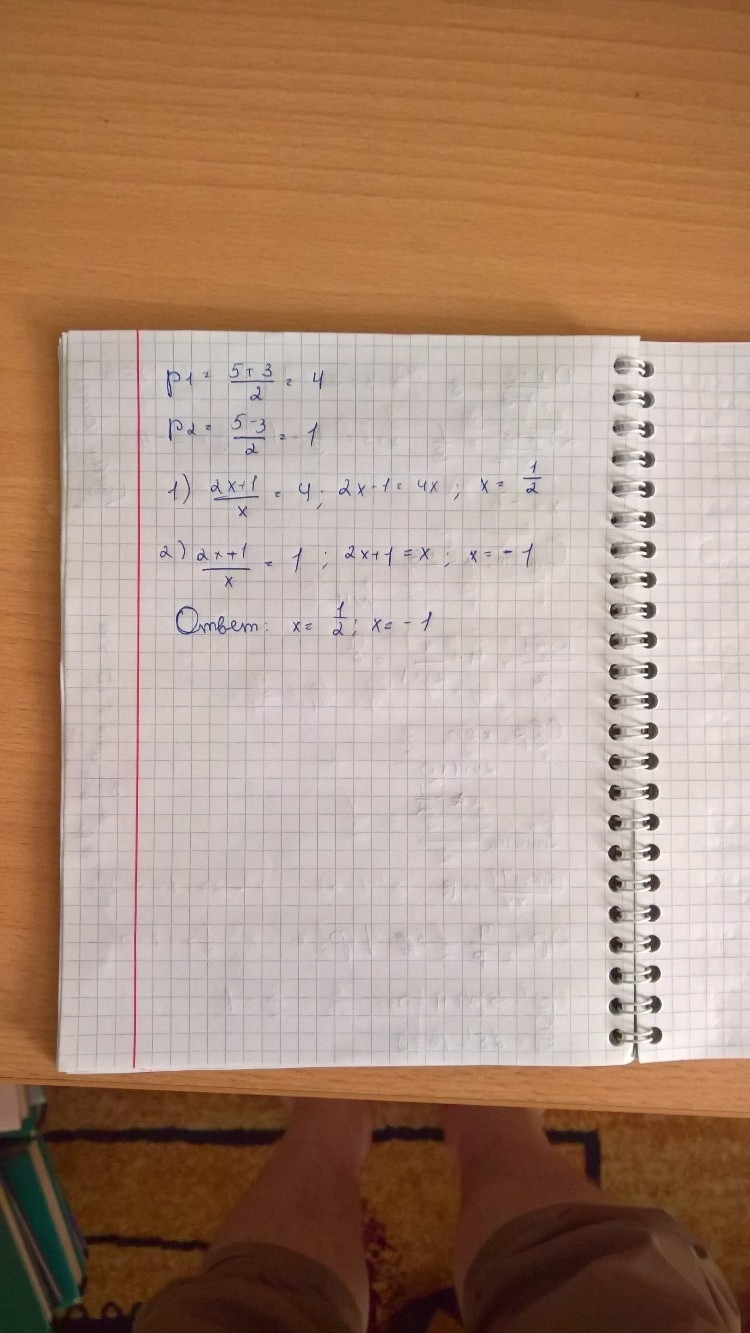 p1 = 5+3/2 = 4
p2 = 5-3/2 = 1
1) 2x+1/x = 4; 2x-1 = 4x; x = 1/2
2) 2x+1/x = 1; 2x+1 = x; x = -1
Ответ: x = 1/2; x = -1